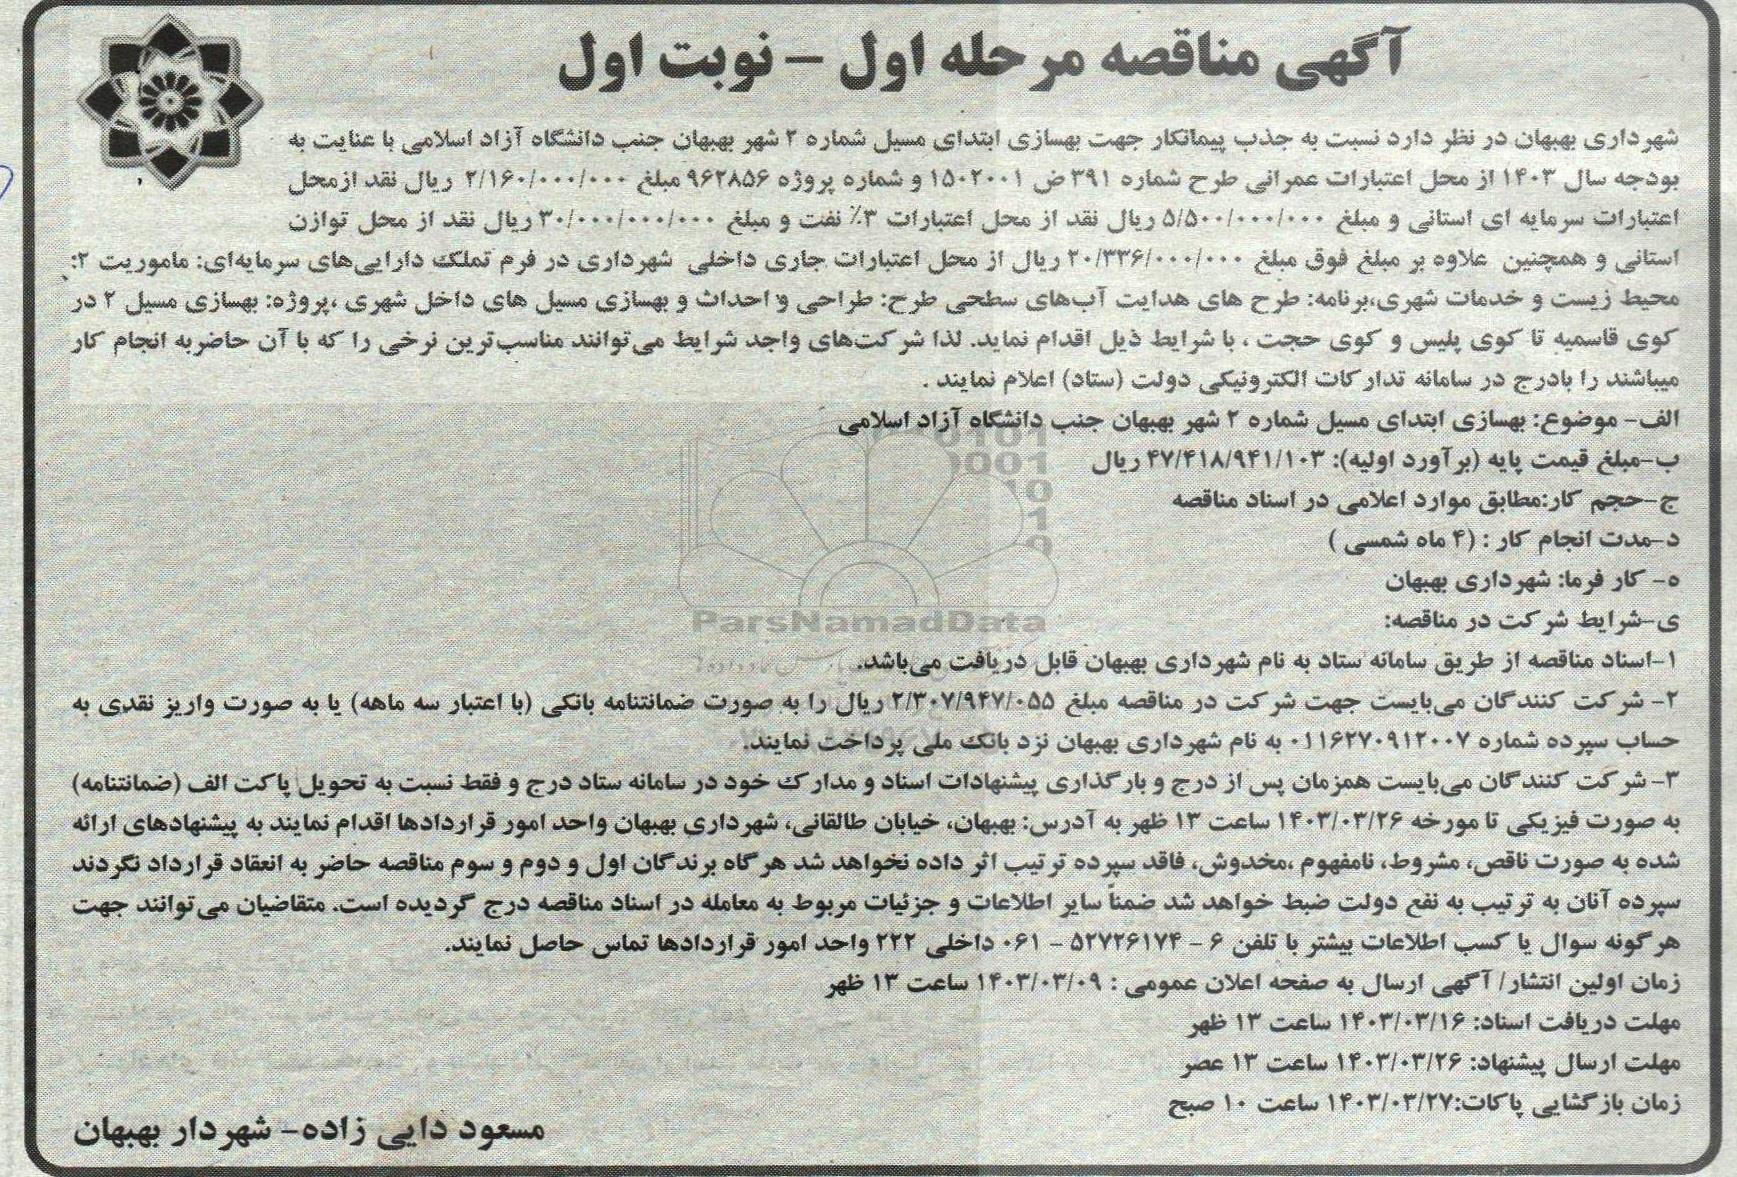 آگهی مناقصه مرحله اول – نوبت اول
شهرداری بهبهان در نظر دارد نسبت به جذب پیمانکار جهت بهسازی ابتدای مسیل شماره ۲ شهر بهبهان جنب دانشگاه آزاد اسلامی با عنایت به
بودجه سال ۱۴۰۳ از محل اعتبارات عمرانی طرح شماره ۳۹۱ ض ۱۵۰۲۰۰۱ و شماره پروژه ۹۶۲۸۵۶ مبلغ ۲/۱۶۰/۰۰۰/۰۰۰ ریال نقد ازمحل
اعتبارات سرمایه ای استانی و مبلغ ۵/۵۰۰/۰۰۰/۰۰۰ ریال نقد از محل اعتبارات ۳٪ نفت و مبلغ ۳۰/۰۰۰/۰۰۰/۰۰۰ ریال نقد از محل توازن
استانی و همچنین علاوه بر مبلغ فوق مبلغ ۲۰/۳۳۶/۰۰۰/۰۰۰ ریال از محل اعتبارات جاری داخلی شهرداری در فرم تملک دارایی‌های سرمایه‌ای: ماموریت ۲:
محیط زیست و خدمات شهری،برنامه: طرح های هدایت آب‌های سطحی طرح: طراحی و احداث و بهسازی مسیل های داخل شهری ،پروژه: بهسازی مسیل ۲ در
کوی قاسمیه تا کوی پلیس و کوی حجت ، با شرایط ذیل اقدام نماید. لذا شرکت‌های واجد شرایط می‌توانند مناسب‌ترین نرخی را که با آن حاضربه انجام کار
میباشند را بادرج در سامانه تدارکات الکترونیکی دولت (ستاد) اعلام نمایند .
الف- موضوع: بهسازی ابتدای مسیل شماره ۲ شهر بهبهان جنب دانشگاه آزاد اسلامی
ب-مبلغ قیمت پایه (برآورد اولیه): ۴۷/۴۱۸/۹۴۱/۱۰۳ ریال
ج-حجم کار:مطابق موارد اعلامی در اسناد مناقصه
د-مدت انجام کار : (۴ ماه شمسی )
ه- کار فرما: شهرداری بهبهان
ی-شرایط شرکت در مناقصه:
ParsNamadData
۱-اسناد مناقصه از طریق سامانه ستاد به نام شهرداری بهبهان قابل دریافت می‌باشد.
۲- شرکت کنندگان می‌بایست جهت شرکت در مناقصه مبلغ ۲/۳۰۷/۹۴۷/۰۵۵ ریال را به صورت ضمانتنامه بانکی (با اعتبار سه ماهه) یا به صورت واریز نقدی به
حساب سپرده شماره ۰۱۱۶۲۷۰۹۱۲۰۰۷ به نام شهرداری بهبهان نزد بانک ملی پرداخت نمایند.
۳- شرکت کنندگان می‌بایست همزمان پس از درج و بارگذاری پیشنهادات اسناد و مدارک خود در سامانه ستاد درج و فقط نسبت به تحویل پاکت الف (ضمانتنامه)
به صورت فیزیکی تا مورخه ۱۴۰۳/۰۳/۲۶ ساعت ۱۳ ظهر به آدرس: بهبهان، خیابان طالقانی، شهرداری بهبهان واحد امور قراردادها اقدام نمایند به پیشنهادهای ارائه
شده به صورت ناقص، مشروط، نامفهوم ،مخدوش، فاقد سپرده ترتیب اثر داده نخواهد شد هرگاه برندگان اول و دوم و سوم مناقصه حاضر به انعقاد قرارداد نگردند
سپرده آنان به ترتیب به نفع دولت ضبط خواهد شد ضمناً سایر اطلاعات و جزئیات مربوط به معامله در اسناد مناقصه درج گردیده است. متقاضیان می‌توانند جهت
هرگونه سوال یا کسب اطلاعات بیشتر با تلفن ۶ – ۵۲۷۲۶۱۷۴ – ۰۶۱ داخلی ۲۲۲ واحد امور قراردادها تماس حاصل نمایند.
زمان اولین انتشار/ آگهی ارسال به صفحه اعلان عمومی : ۱۴۰۳/۰۳/۰۹ ساعت ۱۳ ظهر
مهلت دریافت اسناد: ۱۴۰۳/۰۳/۱۶ ساعت ۱۳ ظهر
مهلت ارسال پیشنهاد: ۱۴۰۳/۰۳/۲۶ ساعت ۱۳ عصر
زمان بازگشایی پاکات:۱۴۰۳/۰۳/۲۷ ساعت ۱۰ صبح
مسعود دایی زاده- شهردار بهبهان